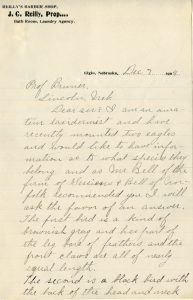 REILLY'S BARBER SHOP.
J. C. Reilly, Prop....
Bath Room, Laundry Agency.
Elgin, Nebraska, Dec 7 190
Prof. Bruner,
Lincoln, Neb
Dear sir: I am an ama-
teur taxidermist and have
recently mounted two eagles
and would like to have infor-
mation as to what species they
belong and as Mr Bell of the
firm of & Bell of Nor-
folk recommended you I will
ask the favor of an answer.
The first bird is a kind of
brownish gray and has part of
the leg bare of feathers and the
front claws are all of nearly
equal length.
The second is a black bird with
the back of the head and neck